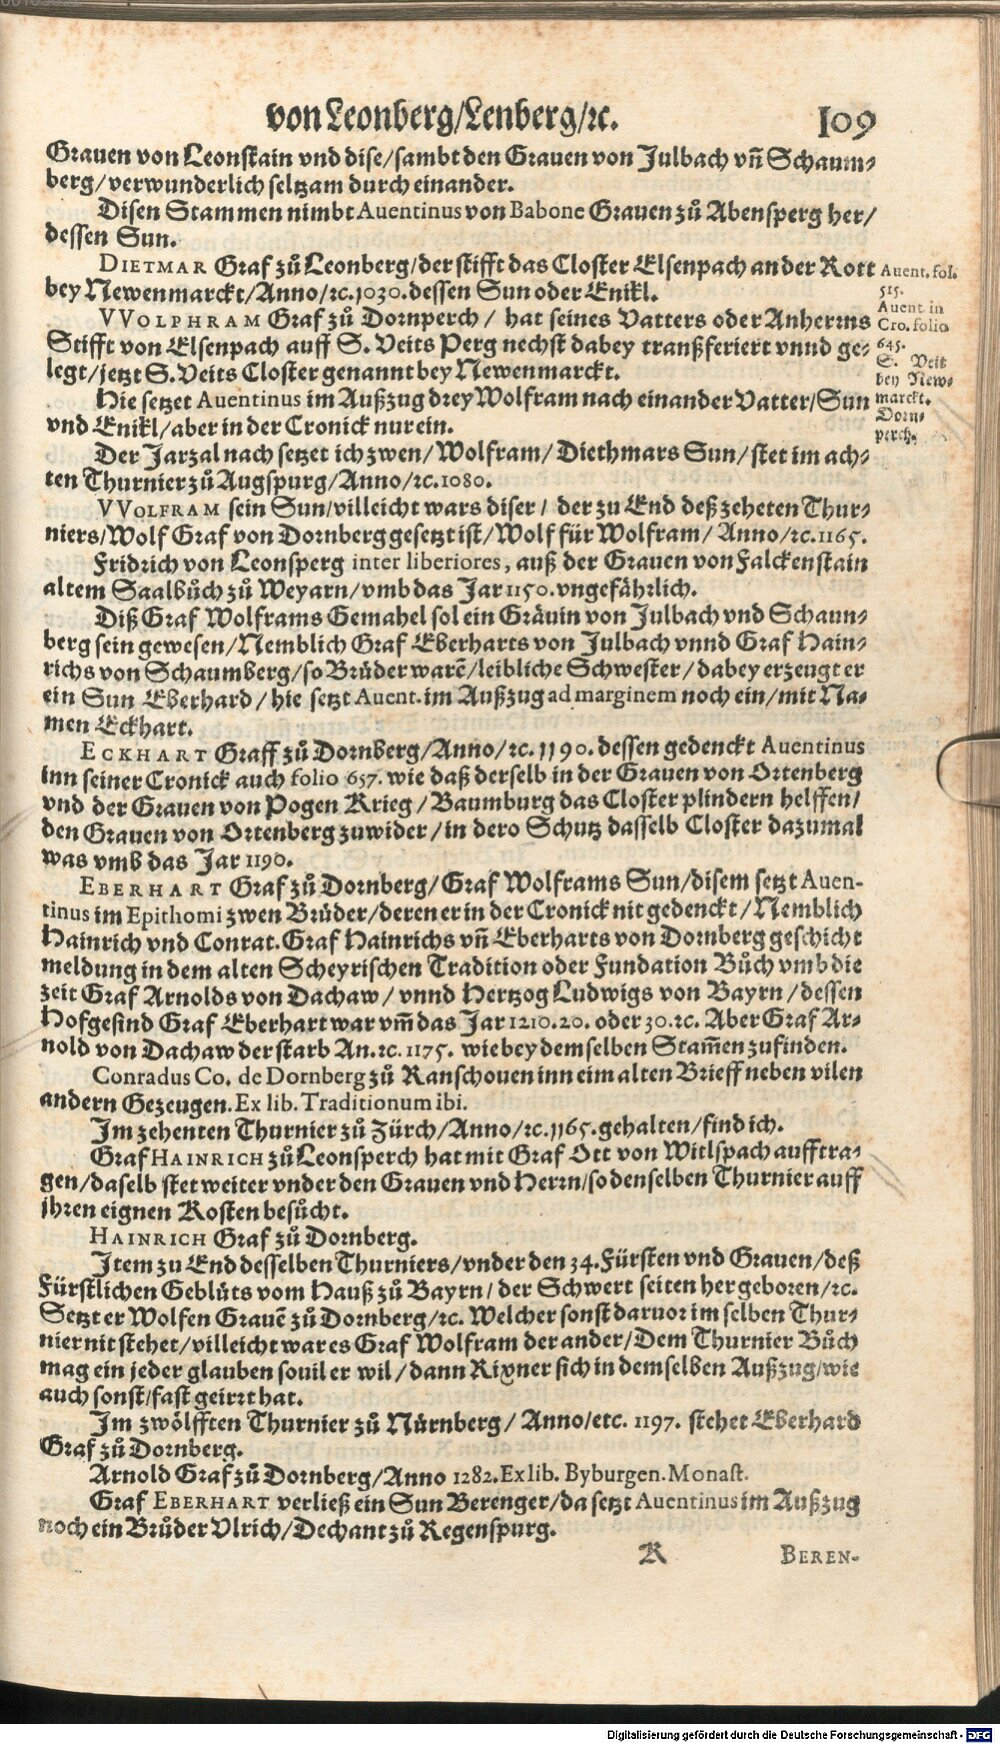 von Leonberg/Lenberg/ꝛc. 109
Grauen von Leonstain vnd dise/sambt den Grauen von Julbach vñ Schaum-
berg/verwunderlich seltzam durch einander.
Disen Stammen nimbt Auentinus von Babone Grauen zů Abensperg her/
dessen Sun.
DIETMAR Graf zů Leonberg/der stifft das Closter Elsenpach an der Rott
bey Newenmarckt/Anno/ꝛc.1030.dessen Sun oder Enikl.
VVOLPHRAM Graf zů Dornperch/ hat seines Vatters oder Anherrns
Stifft von Elsenpach auff S. Veits Perg nechst dabey transßferiert vnnd ge-
legt/jetzt S.Veits Closter genannt bey Newenmarckt.
Hie setzet Auentinus im Außzug drey Wolfram nach einander Vatter/Sun
vnd Enikl/aber in der Cronick nur ein.
Der Jarzal nach setzet ich zwen/Wolfram/ Diethmars Sun/stet im ach-
ten Thurnier zů Augspurg/Anno/ꝛc.1080.
VVOLFRAM sein Sun/villeicht wars diser/ der zu End deß zeheten Thur-
niers/Wolf Graf von Dornberg gesetzt ist/Wolf für Wolfram/ Anno/ꝛc.1165.
Fridrich von Leonsperg inter liberiores, auß der Grauen von Falckenstain
altem Saalbůch zů Weyarn/vmb das Jar 1150.vngefährlich.
Diß Graf Wolframs Gemahel sol ein Gräuin von Julbach vnd Schaun-
berg sein gewesen/Nemblich Graf Eberharts von Julbach vnnd Graf Hain-
richs von Schaumberg/so Brüder warẽ/leibliche Schwester/dabey erzeugt er
ein Sun Eberhard/hie setzt Auent.im Außzug ad marginem noch ein/mit Na-
men Eckhart.
ECKHART Graff zů Dornberg/Anno/ꝛc.1190.dessen gedenckt Auentinus
inn seiner Cronick auch folio 657.wie daß derselb in der Grauen von Ortenberg
vnd der Grauen von Pogen Krieg/Baumburg das Closter plindern helffen/
den Grauen von Ortenberg zuwider/in dero Schutz dasselb Closter dazumal
was vmb das Jar 1190.
EBERHART Graf zů Dornberg/Graf Wolframs Sun/disem setzt Auen-
tinus im Epithomi zwen Brüder/deren er in der Cronick nit gedenckt/Nemblich
Hainrich vnd Conrat.Graf Hainrichs vñ Eberharts von Dornberg geschicht
meldung in dem alten Scheyrischen Tradition oder Fundation Bůch vmb die
zeit Graf Arnolds von Dachaw/vnnd Hertzog Ludwigs von Bayrn/dessen
Hofgesind Graf Eberhart war vm̃ das Jar 1210.20. oder 30.ꝛc. Aber Graf Ar-
nold von Dachaw der starb An.ꝛc.1175. wie bey demselben Stam̃en zufinden.
Conradus Co. de Dornberg zů Ranschouen inn eim alten Brieff neben vilen
andern Gezeugen.Ex lib.Traditionum ibi.
Im zehenten Thurnier zů Zürch/Anno/ꝛc.1165.gehalten/find ich.
Graf HAINRICH zů Leonsperch hat mit Graf Ott von Witlspach aufftra-
gen/daselb stet weiter vnder den Grauen vnd Herrn/so denselben Thurnier auff
jhren eignen Kosten besůcht.
HAINRICH Graf zů Dornberg.
Item zu End desselben Thurniers/vnder den 34.Fürsten vnd Grauen/deß
Fürstlichen Geblüts vom Hauß zů Bayrn/der Schwert seiten her geboren/ꝛc.
Setzt er Wolfen Grauẽ zů Dornberg/ꝛc. Welcher sonst daruor im selben Thur-
nier nit stehet/villeicht war es Graf Wolfram der ander/Dem Thurnier Bůch
mag ein jeder glauben souil er wil/dann Rixner sich in demselben Außzug/wie
auch sonst/fast geirrt hat.
Im zwölfften Thurnier zů Nürnberg/ Anno/etc. 1197. stehet Eberhard
Graf zů Dornberg.
Arnold Graf zů Dornberg/Anno 1282.Ex lib. Byburgen.Monast.
Graf EBERHART verließ ein Sun Berenger/da setzt Auentinus im Außzug
noch ein Brůder Vlrich/Dechant zů Regenspurg.
K BEREN-
Auent.fol.
515.
Auent.in
Cro.folio
645.
S. Veit
bey New-
marckt.
Dorn-
perch.
Digitalisierung gefördert durch die Deutsche Forschungsgemeinschaft - DFG